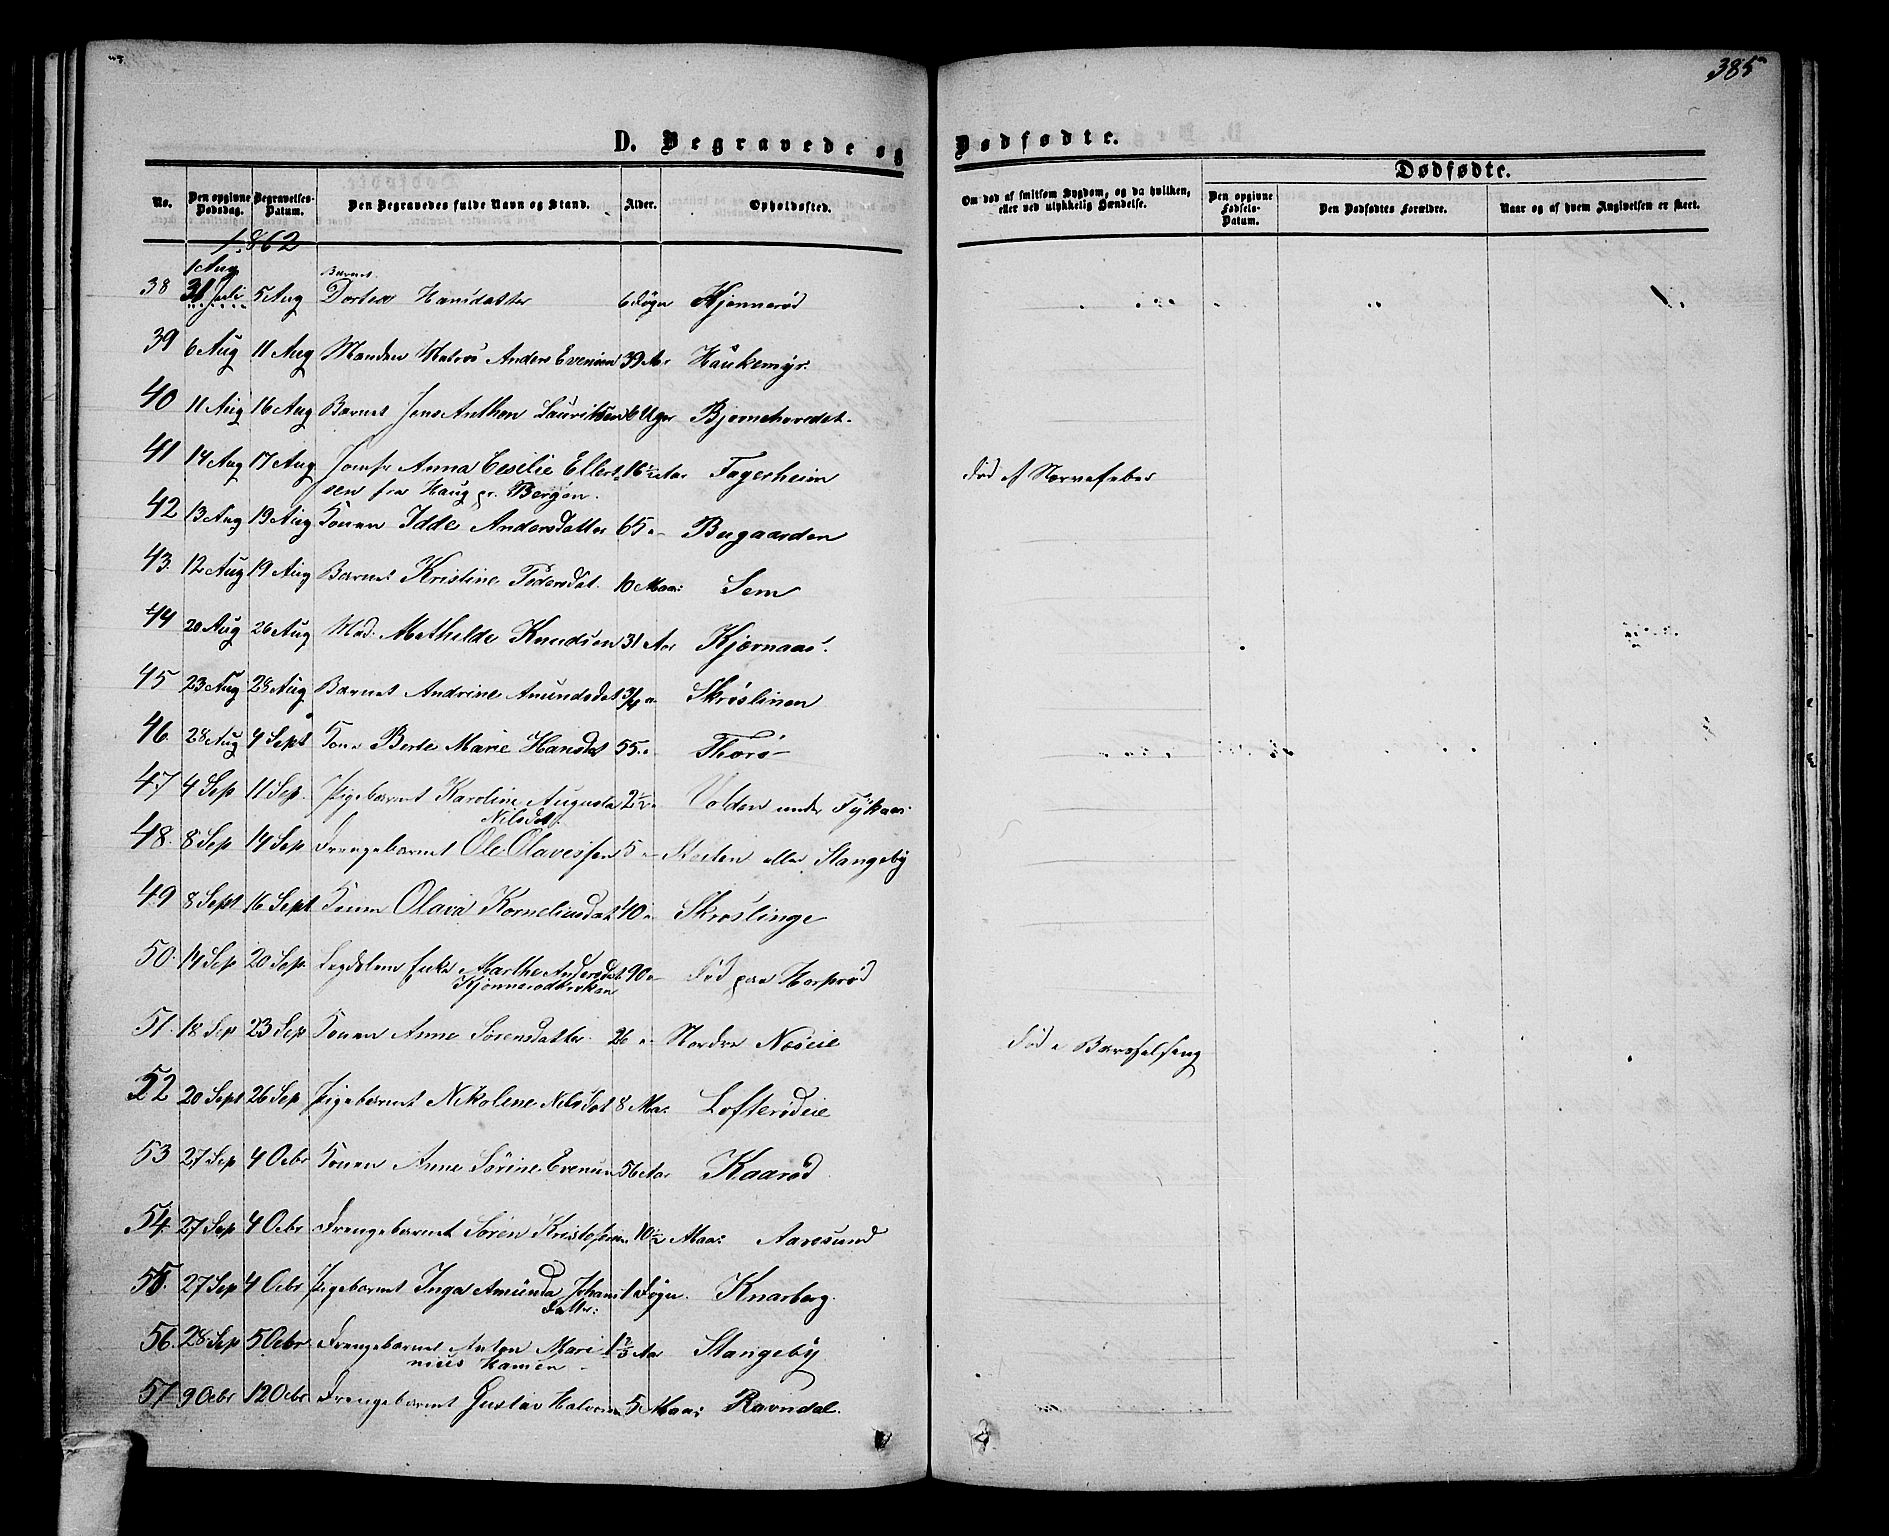 385
D. Begravede og Dødfødte.
Dødfødte.
No. Den opgivne Dødsdag. Begravelses-Datum. Den Begravedes fulde Navn og Stand. Alder. Opholdssted. Om død af smitsom Sygdom, og da hvilken, eller ved ulykkelig Hændelse. Den opgivne Fødsels-Datum. Den Dødfødtes Forældre. Naar og af hvem Angivelsen er skeet.
1862
1 Aug Barnet
38 31 Juli 5 Aug Dortea Hansdatter 6 Døgn Kjønnerød
39 6 Aug 11 Aug Manden Matros Anders Evensen 39 Aar Haukemyr.
40 11 Aug 16 Aug Barnet Jens Anthon Lauritsen 6 Uger Bjørnehovedet.
41 14 Aug 17 Aug Jomfr Anna Cesilie Ellert 16½ Aar Fagerheim død af Nervefeber
sen fra Haug pr. Bergen.
42 13 Aug 19 Aug Konen Idde Andersdatter 65 " Bugaarden
43. 12 Aug 19 Aug Barnet Kristine Pedersdat. 10 Maa: Sem
44 20 Aug 26 Aug Mad: Mathilde Knudsen 31 Aar Kjærnaas.
45 23 Aug 28 Aug Barnet Andrine Amundsdat 3/4 " Skrøslinen
46. 28 Aug 4 Sept Kone Berte Marie Hansdat 55 " Thorø
47 4 Sep 11 Sep. Pigebarnet Karoline Augusta 2½ " Volden under Fykaas
Nilsdat.
48. 8 Sep 14 Sep Drengebarnet Ole Olavessen 5 " eller Stangeby
49 8 Sept 16 Sept Konen Olava Korneliusdat 40 " Skrøslinge
50. 14 Sep 20 Sep. Legdslem Enke Marthe Andersdat 90 " død paa Horperød
Kjønnerødbrekan
51. 18 Sep 23 Sep Konen Anne Sørensdatter 26 " Nordre Nøseie død i Barselseng
52 20 Sept 26 Sep Pigebarnet Nikolene Nilsdat 8 Maa. Lofterødeie
53 27 Sep 4 Ocbr Konen Anne Sørine Evensen 56 Aar Kaarød
54. 27 Sep 4 Ocbr Drengebarnet Søren Kristofersen 10½ Maa: Aarøsund
55. 27 Sep 4 Ocbr Pigebarnet Inga Amunda Johans 1 Døgn. Knarberg.
datter:
56. 28 Sep 5 Ocbr Drengebarnet Anton Mari Aar Stangeby
nius Hansen
57 9 Ocbr 12 Ocbr Drengebarnet Gustav Halvorsen 5 Maa: Ravndal.